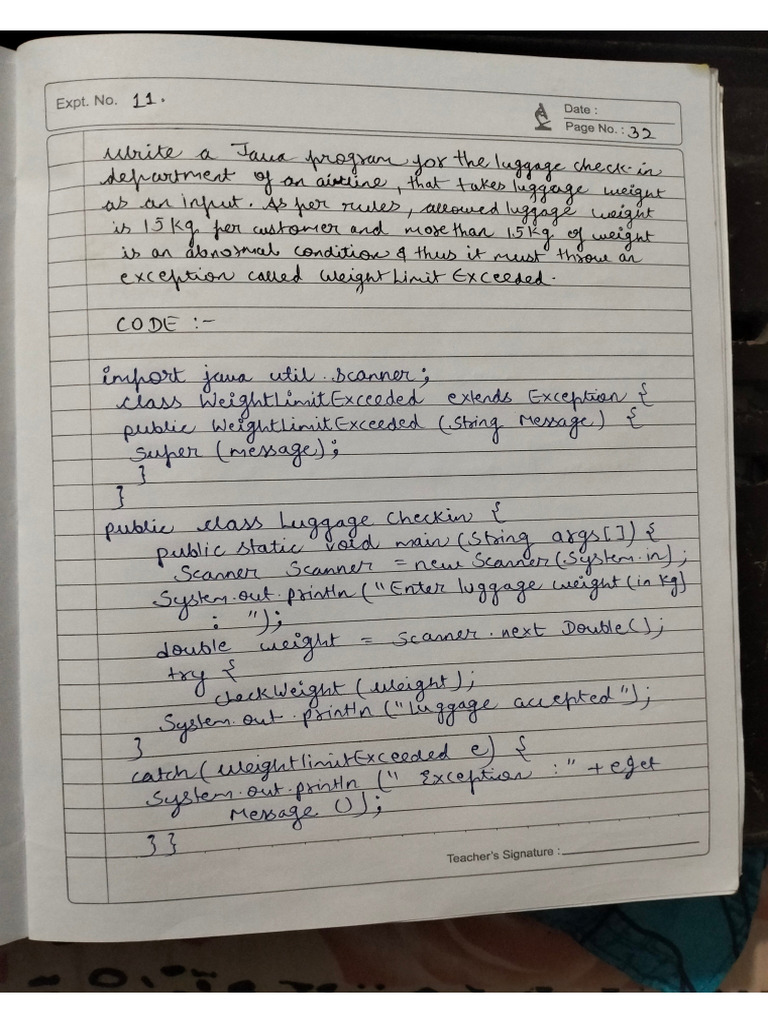 Expt. No. 11.
Date :
Page No. : 32
Write a Java program for the luggage check-in
department of an airline, that takes luggage weight
as an input. As per rules, allowed luggage weight
is 15 Kg per customer and more than 15 Kg of weight
is an abnormal condition & thus it must throw an
exception called WeightLimitExceeded.
CODE :-
import java util.Scanner;
class WeightLimitExceeded extends Exception {
public WeightLimitExceeded (String Message) {
Super (message);
}
}
public class Luggage Checkin {
public static void main (String args[]) {
Scanner Scanner = new Scanner (System.in);
System.out.println ("Enter luggage weight (in Kg)
: ");
double weight = Scanner.next Double();
try {
checkWeight (weight);
System.out.println ("Luggage accepted");
}
catch (WeightlimitExceeded e) {
System.out.println (" Exception :" + eget
Message ());
} }
Teacher's Signature :